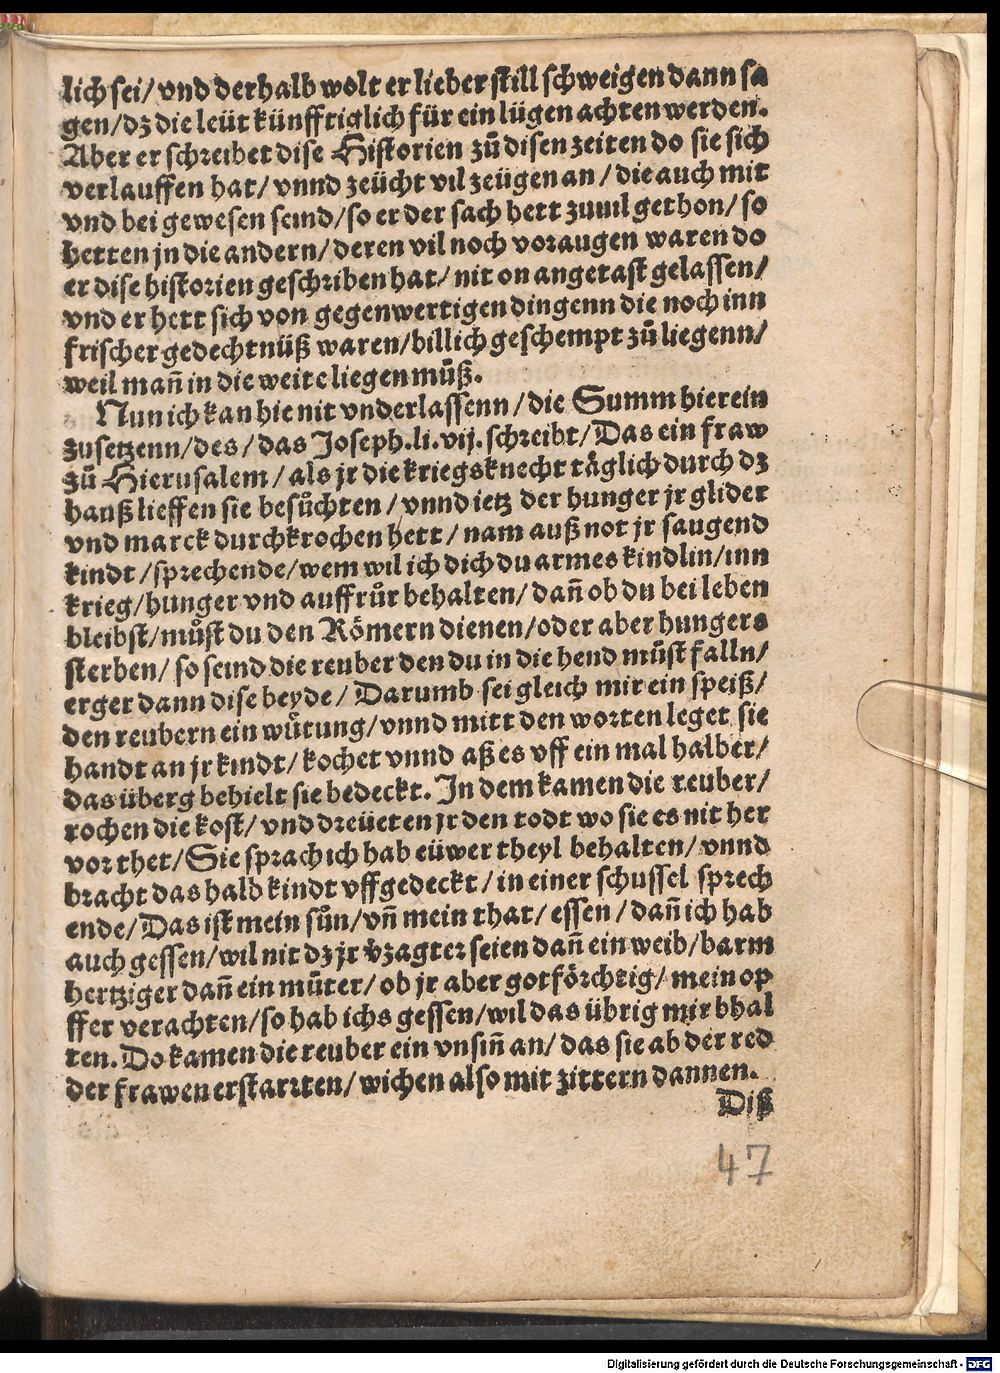 lich sei/ vnd derhalb wolt er lieber still schweigen dann sa
gen/ dz die leüt künfftiglich für ein lügen achten werden.
Aber er schreibet dise Historien zů disen zeiten do sie sich
verlauffen hat/ vnnd zeücht vil zeügen an/ die auch mit
vnd bei gewesen seind/ so er der sach hett zuuil gethon/ so
hetten jn die andern/ deren vil noch voraugen waren do
er dise historien geschriben hat/ nit on angetast gelassen/
vnd er hett sich von gegenwertigen dingenn die noch inn
frischer gedechtnüß waren/ billich geschempt zů liegenn/
weil mañ in die weite liegen můß.
Nun ich kan hie nit vnderlassenn/ die Summ hierein
zusetzenn/ des/ das Joseph. li. vij. schreibt/ Das ein fraw
zů Hierusalem/ als jr die kriegsknecht täglich durch dz
hauß lieffen sie besůchten/ vnnd ietz der hunger jr glider
vnd marck durchkrochen hett/ nam auß not jr saugend
kindt/ sprechende/ wem wil ich dich du armes kindlin/ inn
krieg/ hunger vnd auffrůr behalten/ dañ ob du bei leben
bleibst/ můst du den Römern dienen/ oder aber hungers
sterben/ so seind die reuber den du in die hend můst falln/
erger dann dise beyde/ Darumb sei gleich mir ein speiß/
den reubern ein wůtung/ vnnd mitt den worten leget sie
handt an jr kindt/ kochet vnnd aß es vff ein mal halber/
das überg behielt sie bedeckt. In dem kamen die reuber/
rochen die kost/ vnd dreüeten jr den todt wo sie es nit her
vor thet/ Sie sprach ich hab eüwer theyl behalten/ vnnd
bracht das halb kindt vffgedeckt/ in einer schussel sprech
ende/ Das ist mein sůn/ vñ mein that/ essen/ dañ ich hab
auch gessen/ wil nit dz jr vzagter seien dañ ein weib/ barm
hertziger dañ ein můter/ ob jr aber gotförchtig/ mein op
ffer verachten/ so hab ichs gessen/ wil das übrig mir bhal
ten. Do kamen die reuber ein vnsiñ an/ das sie ab der red
der frawen erstarrten/ wichen also mit zittern dannen.
Diß
47
Digitalisierung gefördert durch die Deutsche Forschungsgemeinschaft - DFG